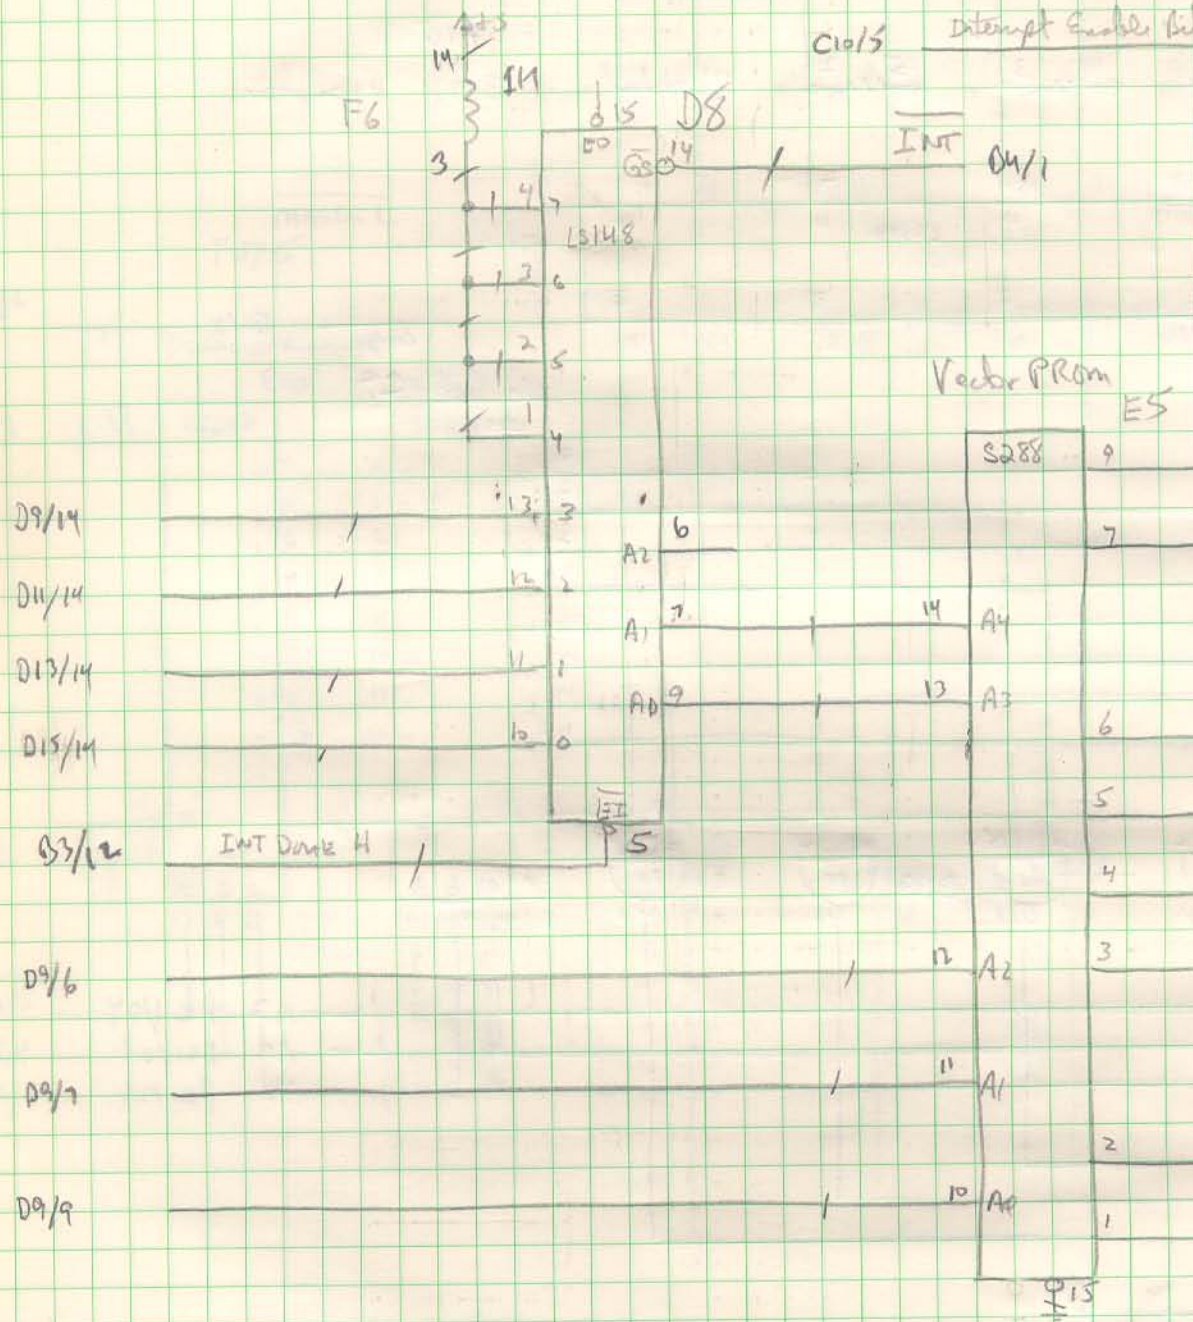 C10/5 Interrupt Enable
14
1K
F6
15 D8
EO
GS 14 INT D4/1
3
4 7
LS148
3 6
2 5
Vector PROM
E5
1 4
S288 9
D9/14 13 3
6
A2
7
D11/14 12 2
A1 7 14 A4
D13/14 11 1
A0 9 13 A3
D15/14 10 0
6
EI
5
B3/12 INT Done H 5
4
D9/6 12 A2 3
D9/7 11 A1
2
D9/9 10 A0
1
15